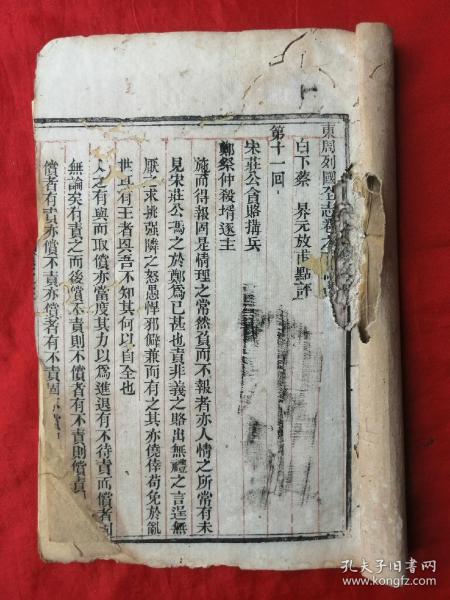 東周列國全志卷之
白下蔡 昇元放甫點評
第十一回
宋莊公貪賂搆兵
鄭祭仲殺壻逐主
施而得報固是情理之常然負而不報者亦人情之所常有未
見宋莊公馮之於鄭為已甚也責非義之賂出無禮之言逞無
厭之求挑强隣之怒愚悍邪僻兼而有之其亦僥倖苟免於亂
世耳有王者興吾不知其何以自全也
人之有與而取償亦當度其力以為進退有不待責而償者則
無論矣有責之而後償不責則不償者有不責則償責
償者有責亦償不責亦償者有不責固不償
孔夫子旧书网
www.kongfz.com